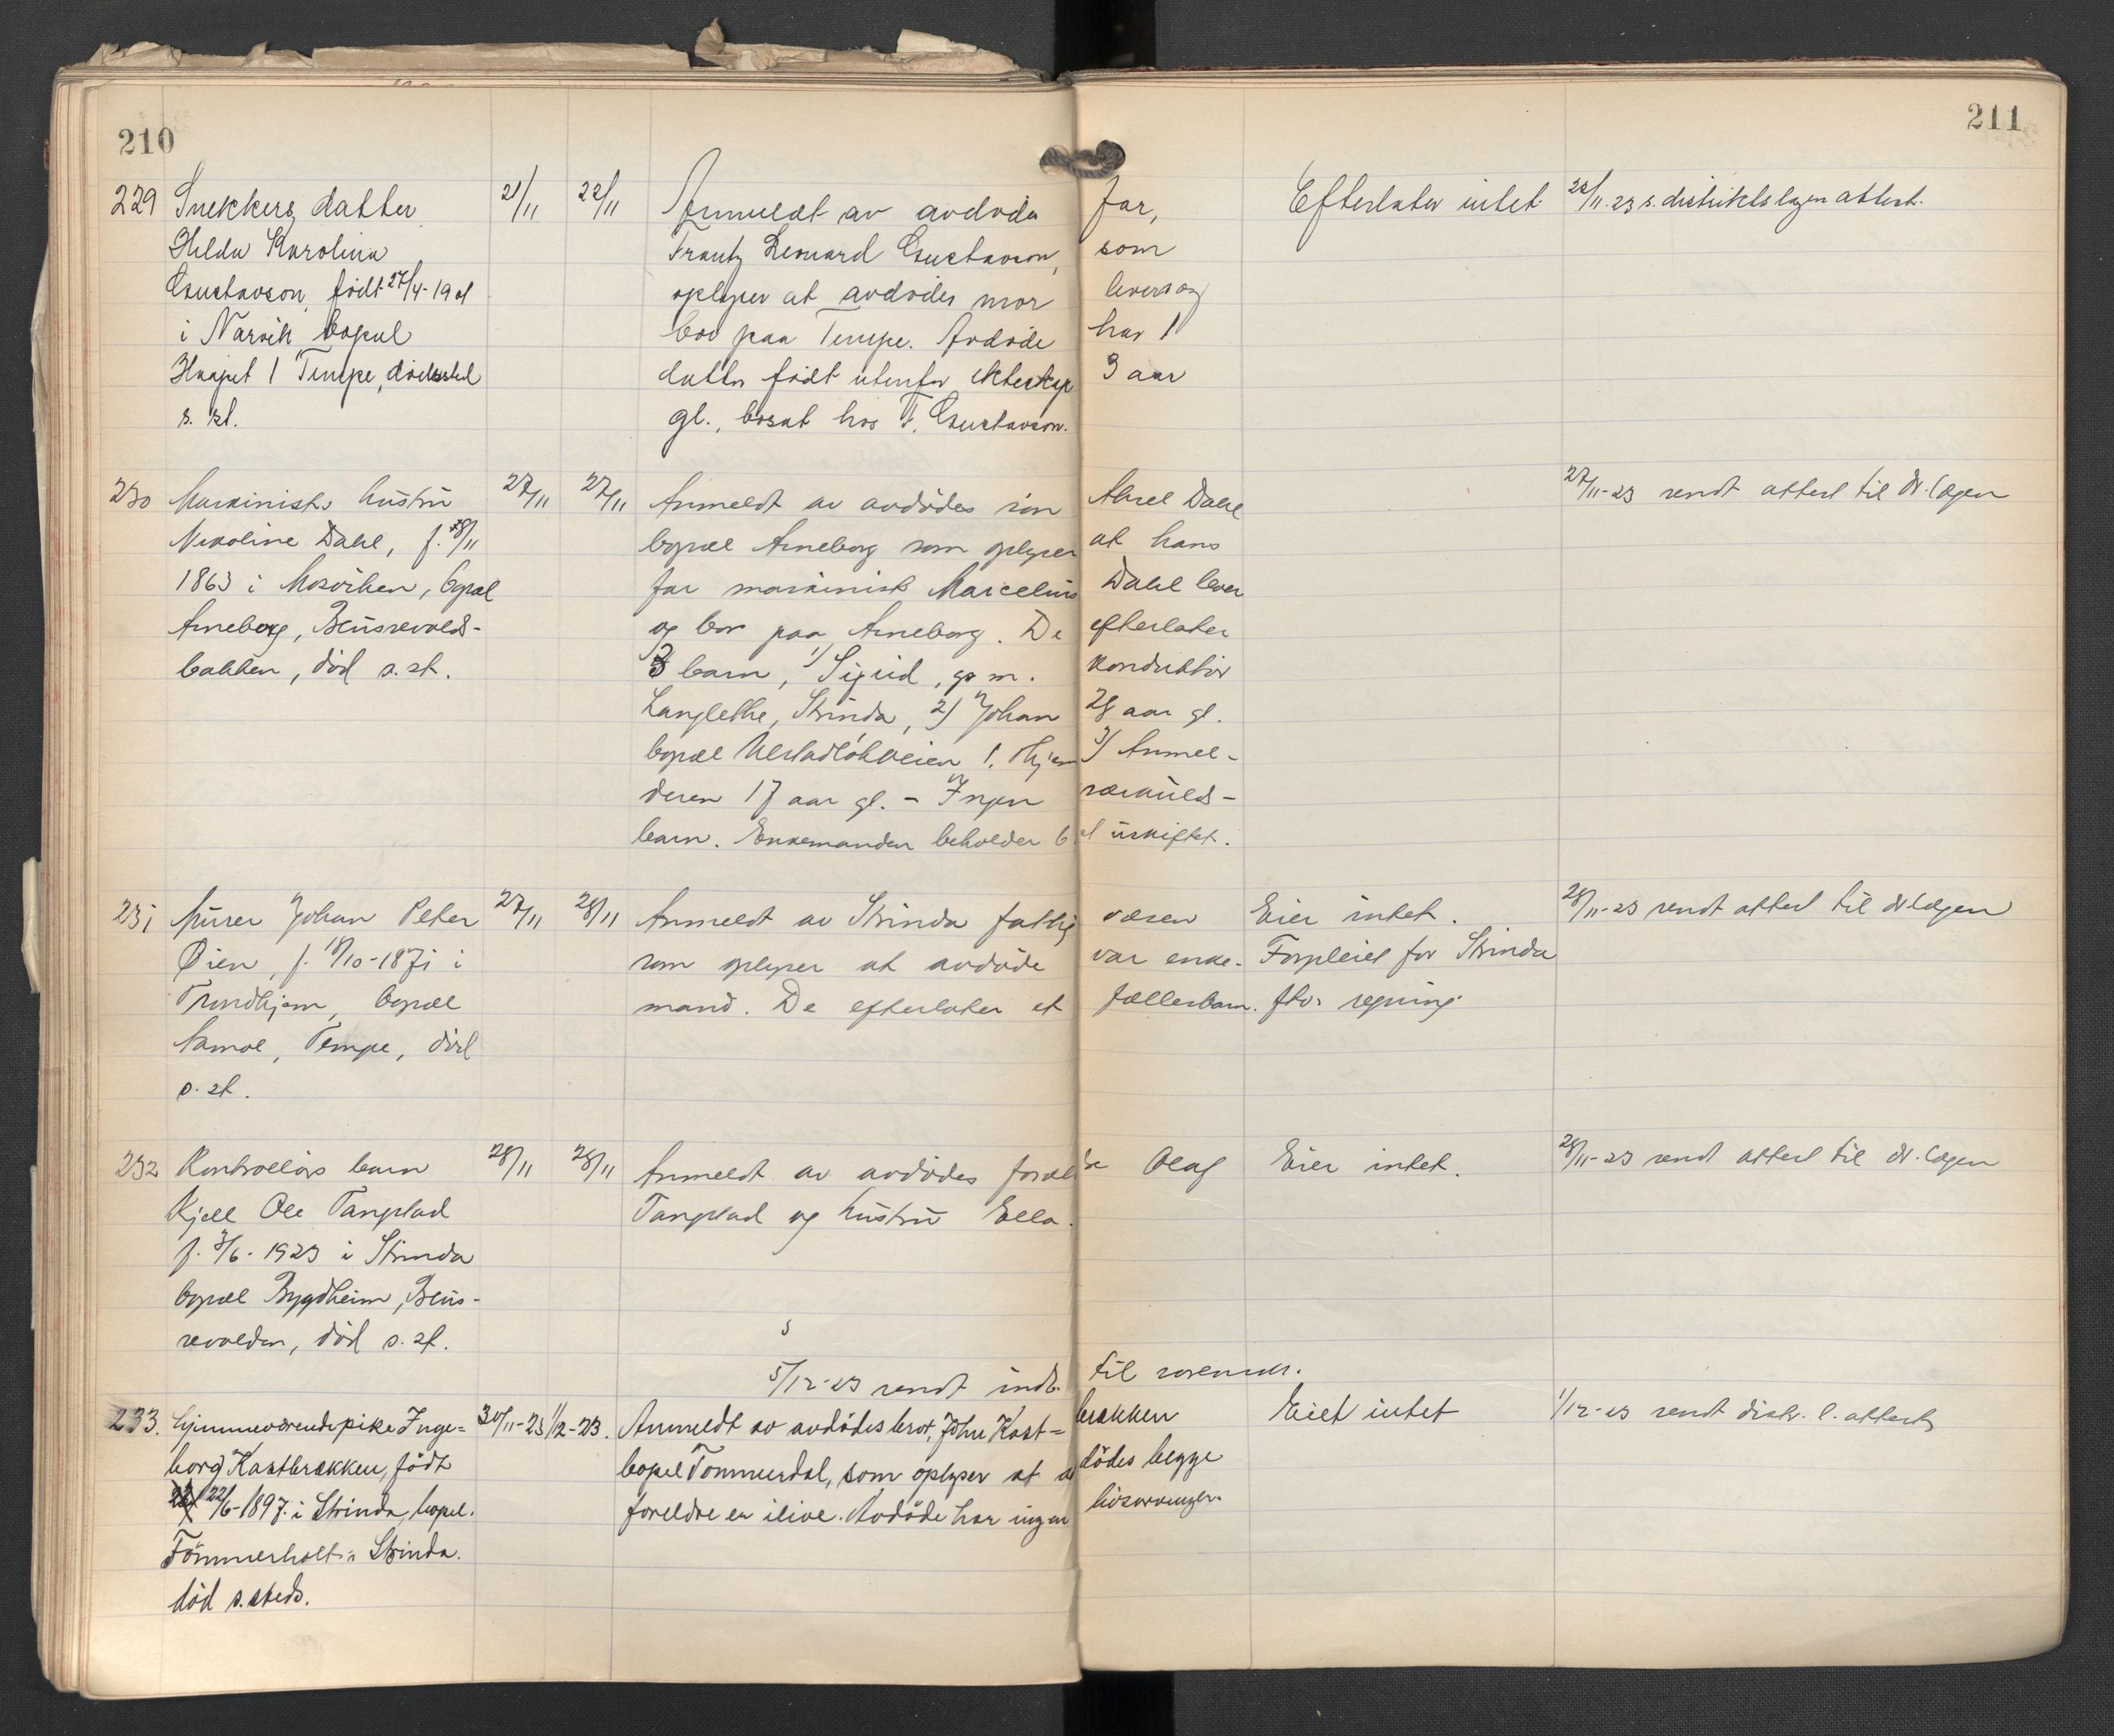 210
211
229 Snekkers datter 21/11 22/11 Anmeldt av avdøde far, Efterlater intet 22/11-23 s. distriktslægen attest.
Hilda Karolina Frantz Leonard Gustavson, som
Gustavson født 27/4-1901 oplyser at avdødes mor lever og
i Narvik bopæl bor paa Tempe. Avdøde har 1
Haapet 1 Tempe, dødssted datter født utenfor ekteskap 3 aar
s. st. gl., bosat hos F. Gustavson.
230 Maskinists hustru 27/11 27/11 Anmeldt av avdødes søn Aksel Dahl 27/11-23 sendt attest til D. lægen
Nikoline Dahl, f. 28/11 bopæl Arneborg som oplyser at hans
1863 i Mosviken, bopæl far maskinist Marcelius Dahl lever
Arneborg, Beusrevolds- og bor paa Arneborg. De efterlater
bakken, død s. st. 3 barn, 1) Sigrid, g. m. konduktør
Langlethe, Strinda, 2) Johan 28 aar gl.
bopæl 1. Hjem 3) Anmel-
deren 17 aar gl. - Ingen særkulds-
barn. Enkemanden beholder bo et uskiftet.
231 Murer Johan Peter 27/11 28/11 Anmeldt av Strinda fattig væsen Eier intet. 28/11-23 sendt attest til D. lægen
Øien, f. 18/10-1871 i som oplyser at avdøde var enke- Forpleiet for Strinda
Trondhjem, bopæl mand. De efterlater et fællesbarn. ftv. regning
Namoe, Tempe, død
s. st.
232 Kontrollørs barn 28/11 28/11 Anmeldt av avdødes foræl dre Olaf Eier intet. 28/11-23 sendt attest til D. lægen
Kjell Ole Tangstad Tangstad og hustru Ella.
f. 3/6-1923 i Strinda
bopæl Bygdheim, Beus-
revolden, død s. st.
5/12-23 sendt indb. til sorenskr.
233. Hjemmeværende pike Inge= 30/11-23 1/12-23. Anmeldt av avdødes bror, John Kast= brækken Eiet intet 1/12-23 sendt distr. l. attest
borg Kastbrækken, født bopel Tømmerdal, som oplyser at av dødes begge
22/6-1897 i Strinda, bopel. foreldre er ilive. Avdøde har ingen livsarvinger.
Tømmerholt i Strinda.
død s. steds.